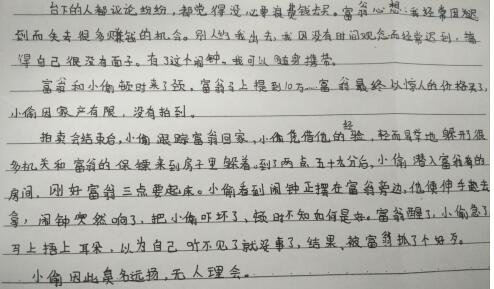 台下的人都议论纷纷，都觉得没必要浪费钱去买。富翁心想：我经常因迟
到而失去很多赚钱的机会。别人约我出去，我因没有时间观念而经常迟到，搞
得自己很没有面子。有了这个闹钟。我可以随身携带。
富翁和小偷顿时来了劲，富翁马上提到10万……富翁最终以惊人的价格买了，
小偷因家产有限，没有拍到。
拍卖会结束后，小偷跟踪富翁回家，小偷凭借他的经验，轻而易举地躲开很
多机关和富翁的保镖来到房子里躲着。到了两点五十九分后，小偷潜入富翁的
房间，刚好富翁三点要起床。小偷看到闹钟正摆在富翁旁边，他便伸手想去
拿，闹钟突然响了，把小偷吓坏了，顿时不知如何是好。富翁醒了，小偷急了
马上捂上耳朵，以为自己听不见了就没事了，结果，被富翁抓了个好歹。
小偷因此臭名远扬，无人理会。